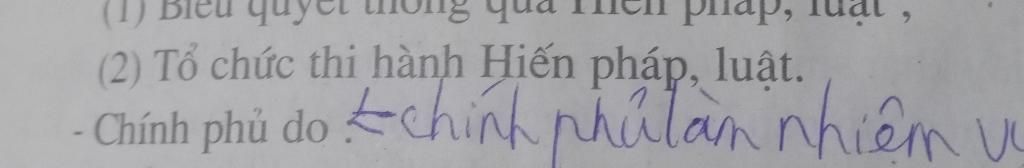 (1) Biểu quyết thông qua Hiến pháp, luật ,
(2) Tổ chức thi hành Hiến pháp, luật.
- Chính phủ do : chính phủ làm nhiệm